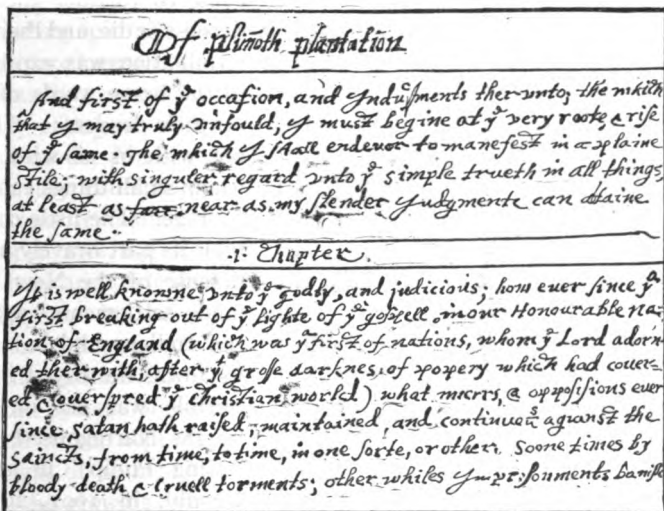 Of plimoth plantation
And first of yᵉ occasion, and Yndusments ther unto; the which
that Y may truly unfould, Y must begine at yᵉ very roote & rise
of yᵉ same. The which Y shall endevor to manefest in a plaine
stile; with singuler regard unto yᵉ simple trueth in all things,
at least as near as my slender Yudgmente can attaine
the same.
.1. Chapter.
Yt is well knowne unto yᵉ godly, and judicious; how ever since yᵉ
first breaking out of yᵉ lighte of yᵉ gospell, in our Honourable na-
tion of England (which was yᵉ first of nations, whom yᵉ Lord adorn-
ed ther with, after yᵗ grosse darknes, of popery which had cover-
ed, & overspred yᵉ christian world) what warrs, & oppossions ever
since satan hath raised, maintained, and continued against the
saincts, from time, to time, in one sorte, or other. Some times by
bloody death & cruell torments; other whiles Ymprisonments, banish